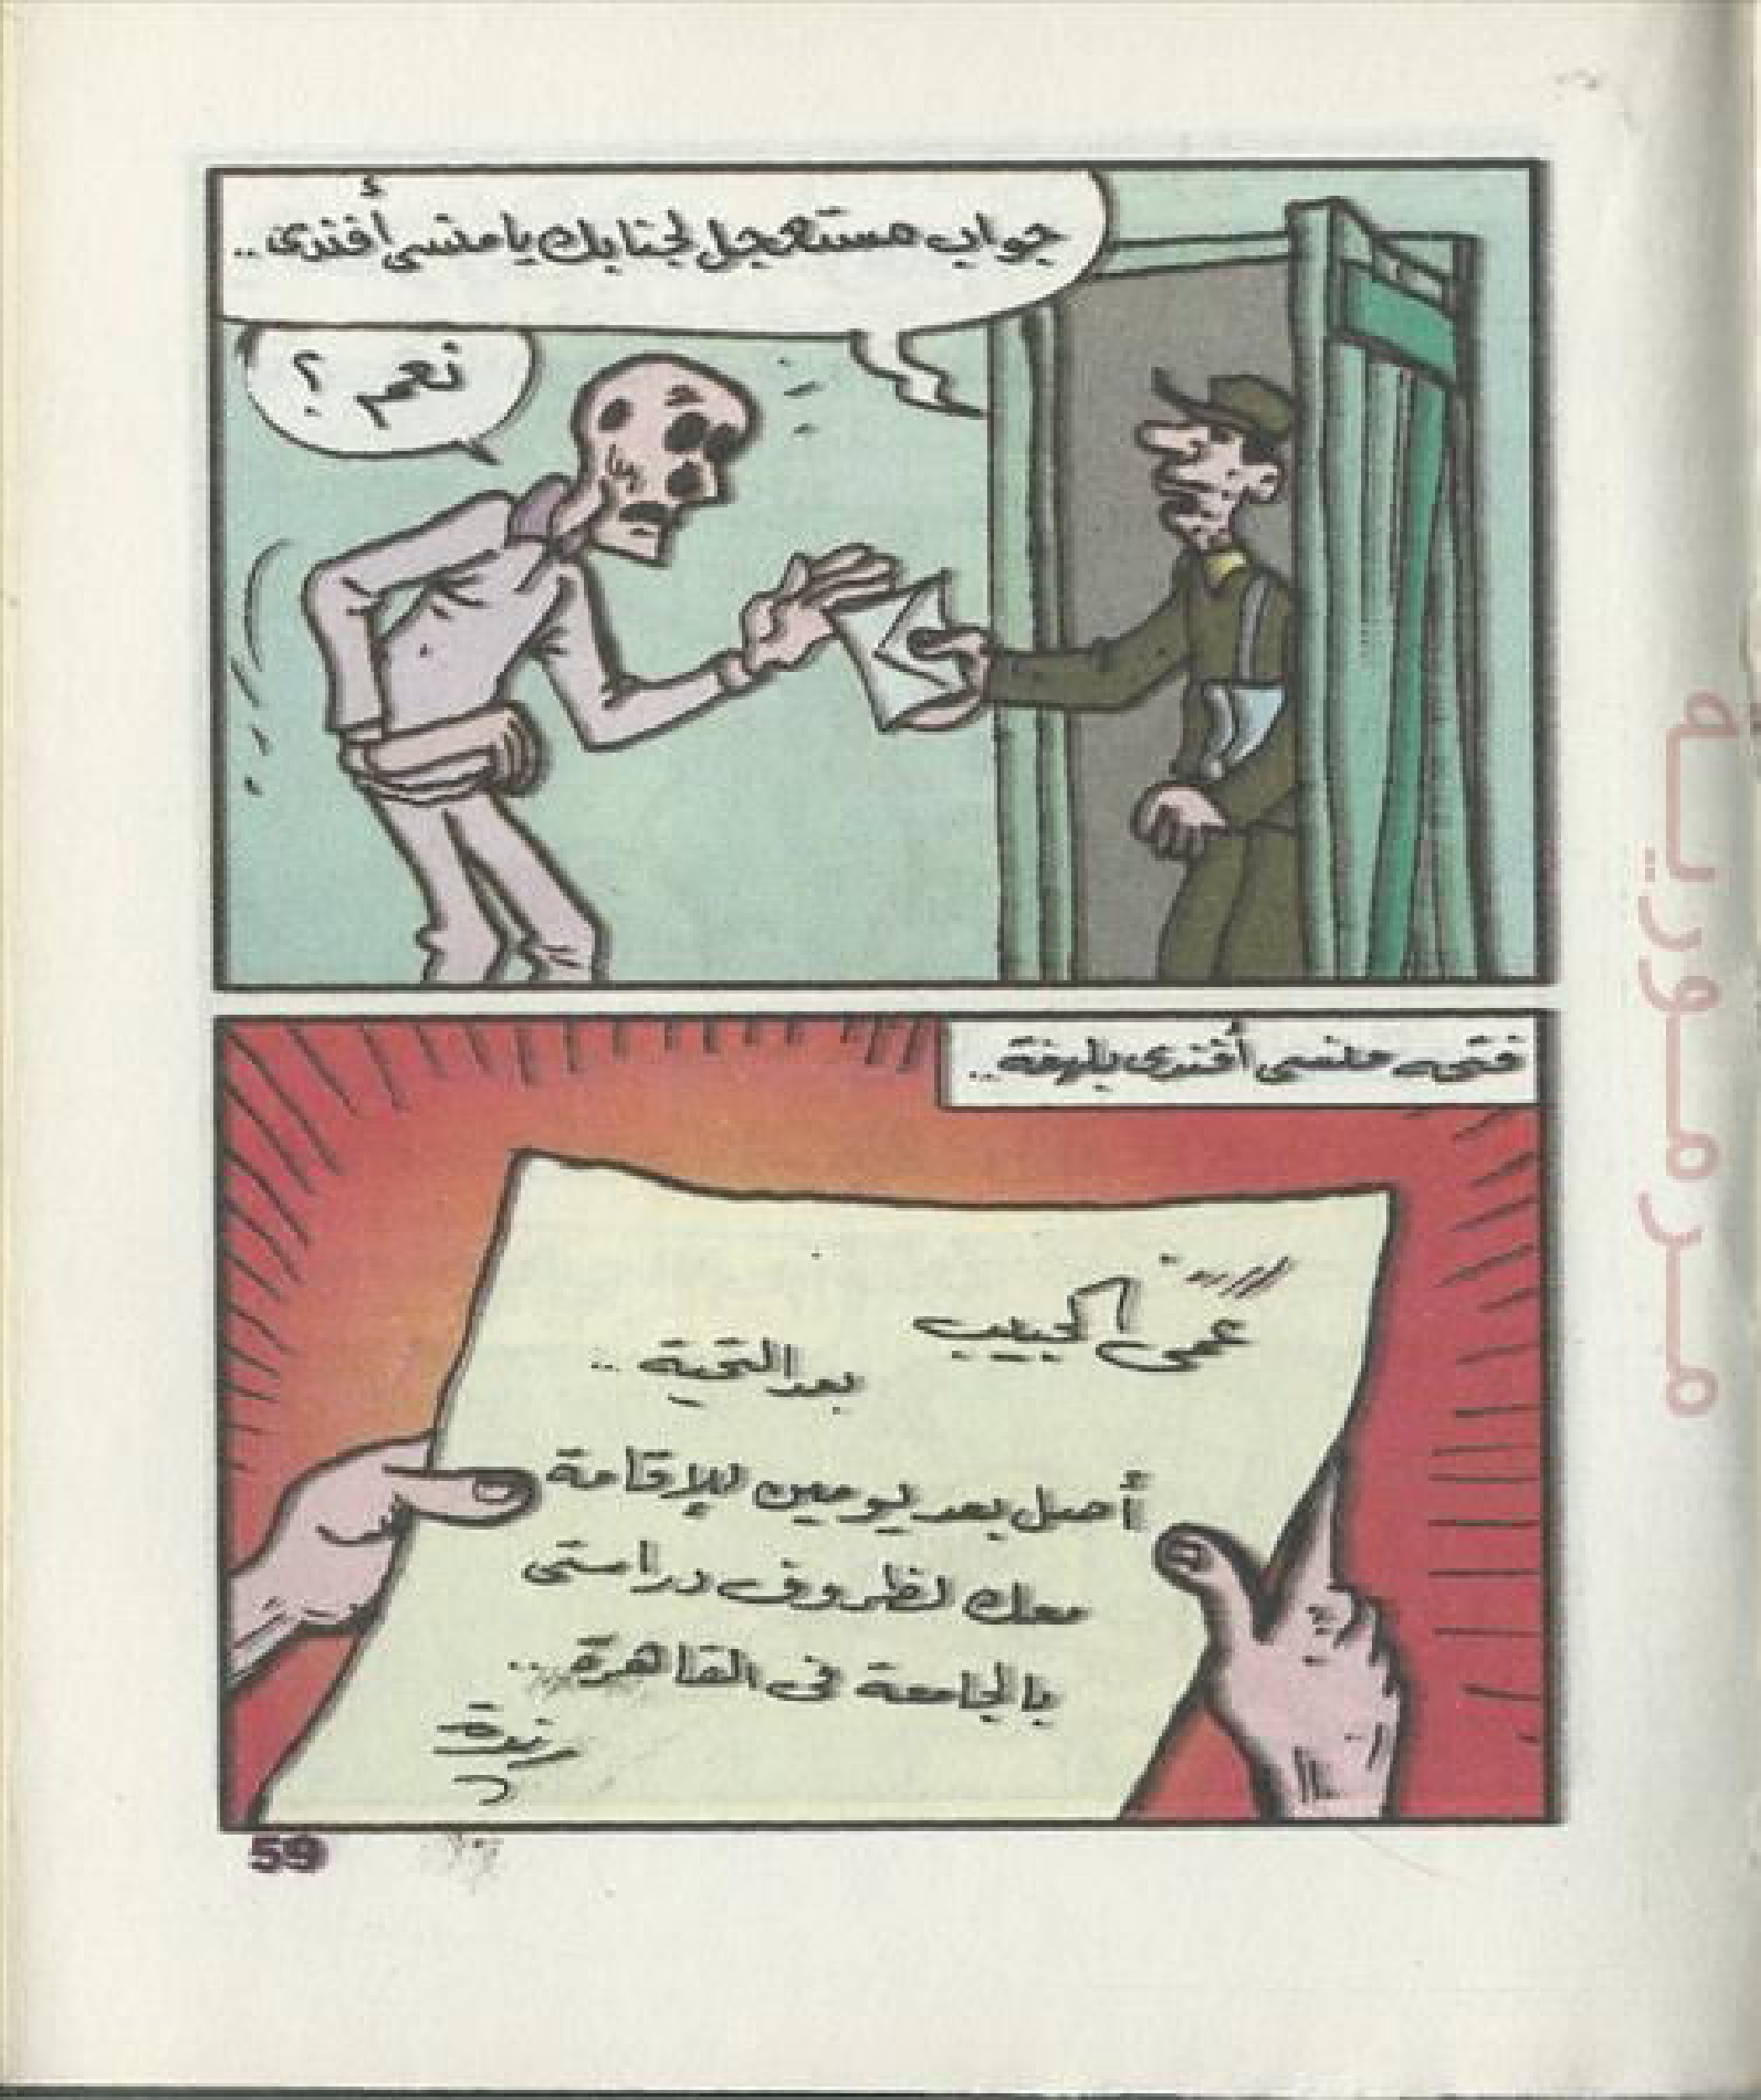 جواب مستعجل لجنابك يا منسى أفندى..
نعم ؟
فتحه منسى أفندى بلهفة..
عمى الحبيب
بعد التحية ..
أصل بعد يومين للإقامة
معك لظروف دراستى
بالجامعة فى القاهرة ..
59